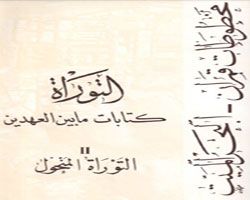 مخطوطات قمران - البحر الميت
التوراة
كتابات مابين العهدين
II
التوراة المنحول